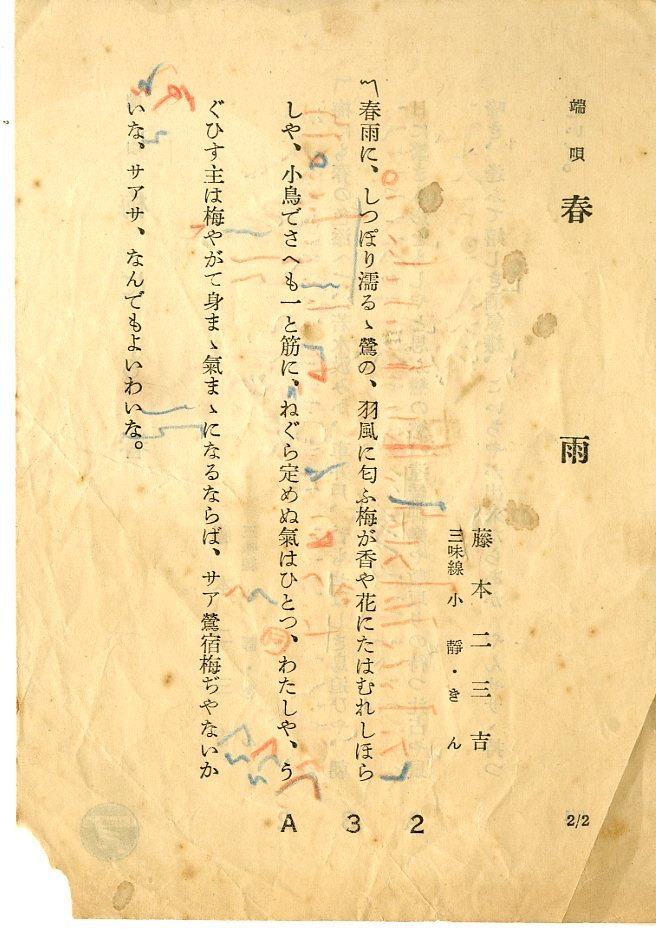 端唄 春雨
藤本二三吉
三味線 小靜・きん
〽春雨に、しつぽり濡るゝ鶯の、羽風に匂ふ梅が香や花にたはむれしほら
しや、小鳥でさへも一と筋に、ねぐら定めぬ氣はひとつ、わたしや、う
ぐひす主は梅やがて身まゝ氣まゝになるならば、サア鶯宿梅ぢやないか
いな、サアサ、なんでもよいわいな。
2/2
A 3 2